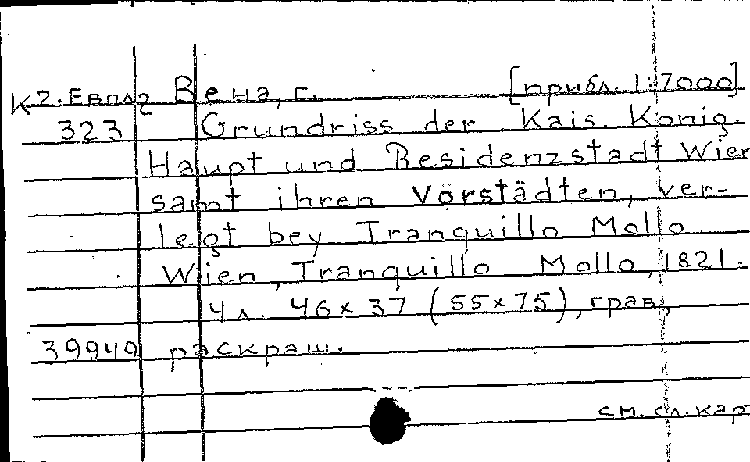 К2.Евп2 Вена, г. [прибл. 1:7000]
323 Grundriss der Kais. Konig.
Haupt und Residenzstadt Wien
samt ihren Vörstädten, ver-
legt bey Tranquillo Mollo
Wien, Tranquillo Mollo, 1821.
4 л. 46x37 (55x75), грав.,
39949 раскраш.
см. сл. кар